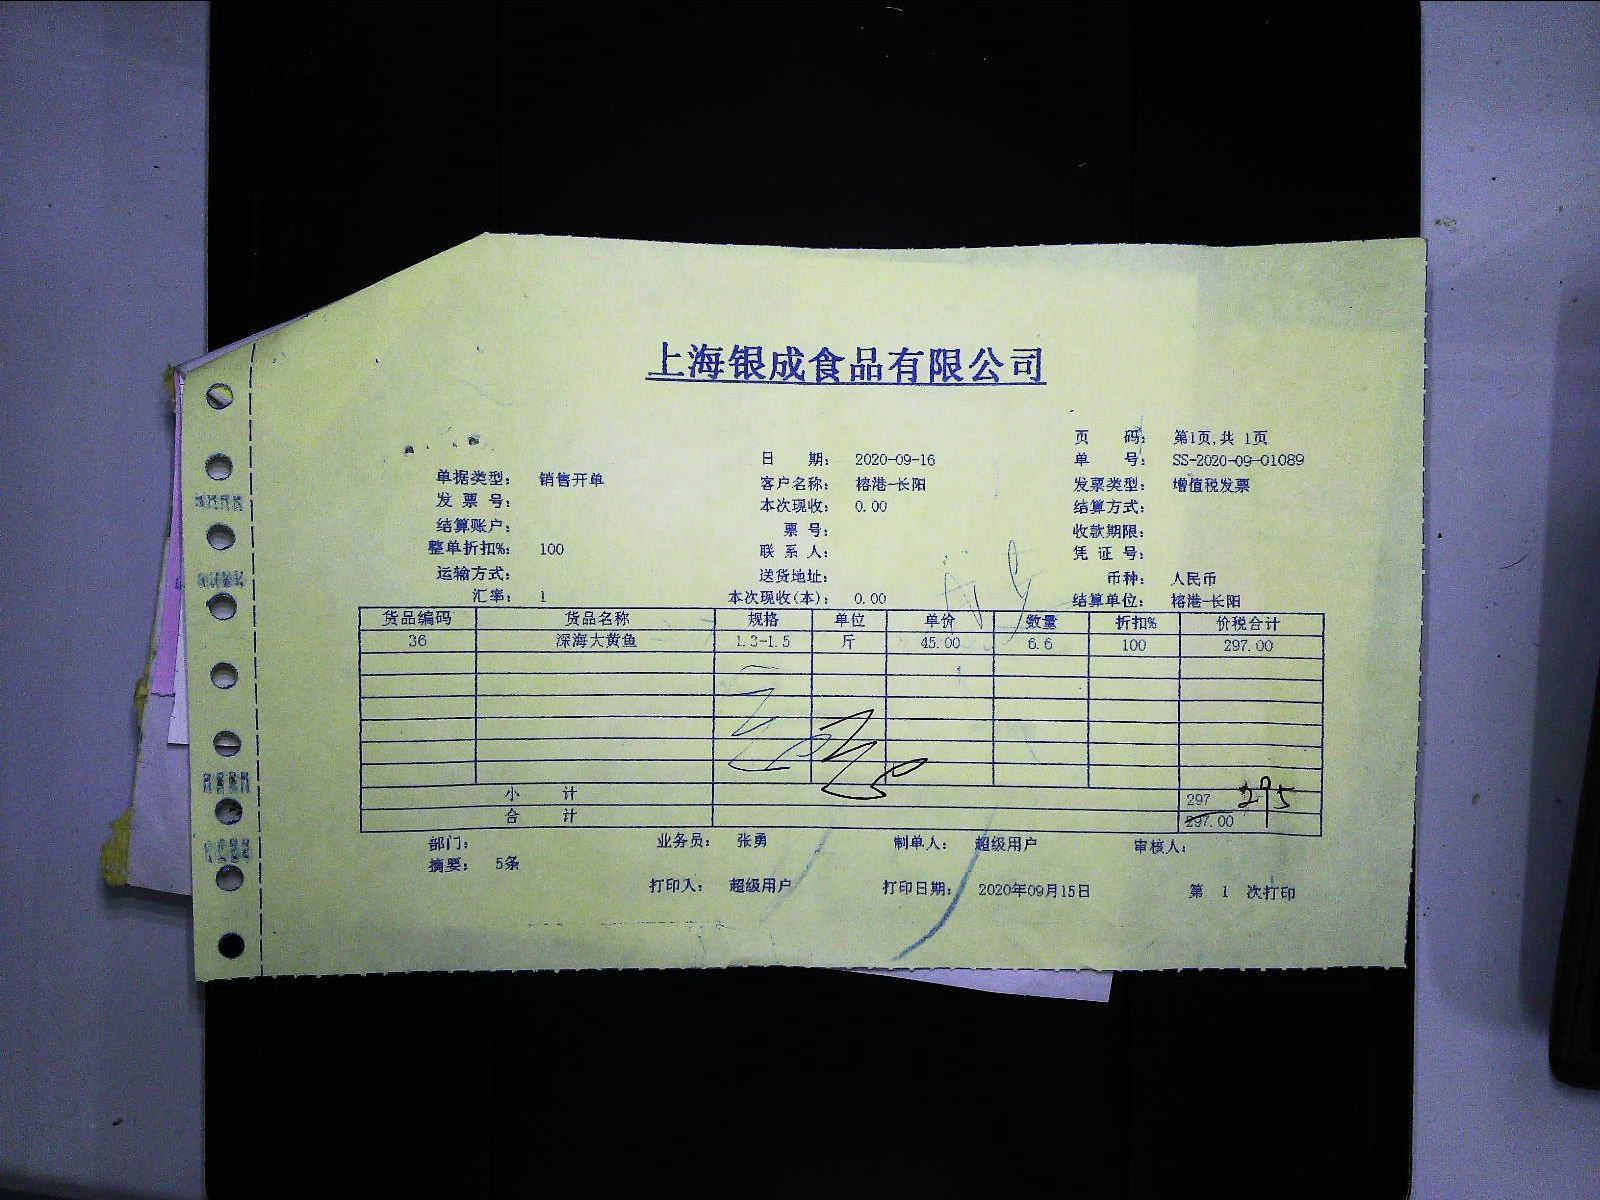 上海银成食品有限公司
页 码： 第1页,共 1页
日 期： 2020-09-16 单 号： SS-2020-09-01089
单据类型： 销售开单 客户名称： 榕港-长阳 发票类型： 增值税发票
发 票 号： 本次现收： 0.00 结算方式：
结算账户： 票 号： 收款期限：
整单折扣%： 100 联 系 人： 凭 证 号：
运输方式： 送货地址： 币种： 人民币
汇率： 1 本次现收(本)： 0.00 结算单位： 榕港-长阳
货品编码 货品名称 规格 单位 单价 数量 折扣% 价税合计
36 深海大黄鱼 1.3-1.5 斤 45.00 6.6 100 297.00
小 计 297 295
合 计 297.00
部门： 业务员： 张勇 制单人： 超级用户 审核人：
摘要： 5条
打印人： 超级用户 打印日期： 2020年09月15日 第 1 次打印